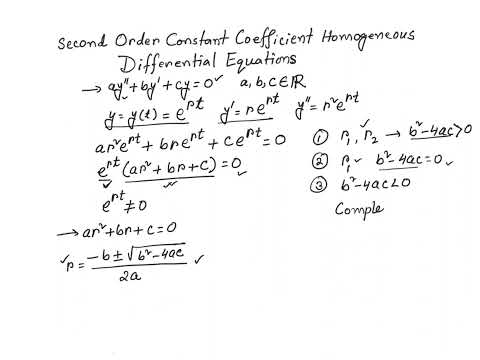 Second Order Constant Coefficient Homogeneous
Differential Equations
→ ay"+by'+cy=0 ✓ a, b, c ∈ ℝ
y = y(t) = e^{rt} y' = re^{rt} y" = r²e^{rt}
ar²e^{rt} + bre^{rt} + ce^{rt} = 0
e^{rt}(ar² + br + c) = 0
e^{rt} ≠ 0
→ ar² + br + c = 0
✓ r = \frac{-b ± √(b² - 4ac)}{2a} ✓
① r₁, r₂ → b²-4ac>0
② r₁ ✓ b²-4ac=0 ✓
③ b²-4ac<0
Comple